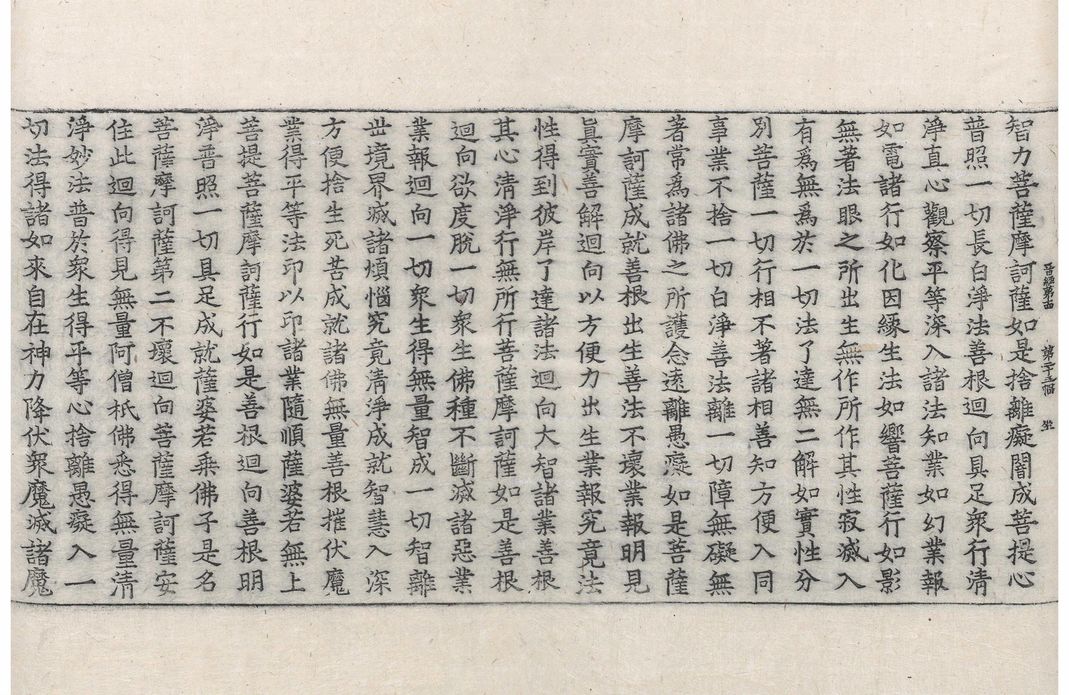 晋經第十五 第二十三張 坐
智力菩薩摩訶薩如是捨離癡闇成菩提心
普照一切長白淨法善根迴向具足衆行清
淨直心觀察平等深入諸法知業如幻業報
如電諸行如化因緣生法如響菩薩行如影
無著法眼之所出生無作所作其性寂滅入
有爲無爲於一切法了達無二解如實性分
別菩薩一切行相不著諸相善知方便入同
事業不捨一切白淨善法離一切障無礙無
著常爲諸佛之所護念遠離愚癡如是菩薩
摩訶薩成就善根出生善法不壞業報明見
眞實善解迴向以方便力出生業報究竟法
性得到彼岸了達諸法迴向大智諸業善根
其心清淨行無所行菩薩摩訶薩如是善根
迴向欲度脫一切衆生佛種不斷滅諸惡業
業報迴向一切衆生得無量智成一切智離
世境界滅諸煩惱究竟清淨成就智慧入深
方便捨生死苦成就諸佛無量善根摧伏魔
業得平等法印以印諸業隨順薩婆若無上
菩提菩薩摩訶薩行如是善根迴向善根明
淨普照一切具足成就薩婆若乘佛子是名
菩薩摩訶薩第二不壞迴向菩薩摩訶薩安
住此迴向得見無量阿僧祇佛悉得無量清
淨妙法普於衆生得平等心捨離愚癡入一
切法得諸如來自在神力降伏衆魔滅諸魔